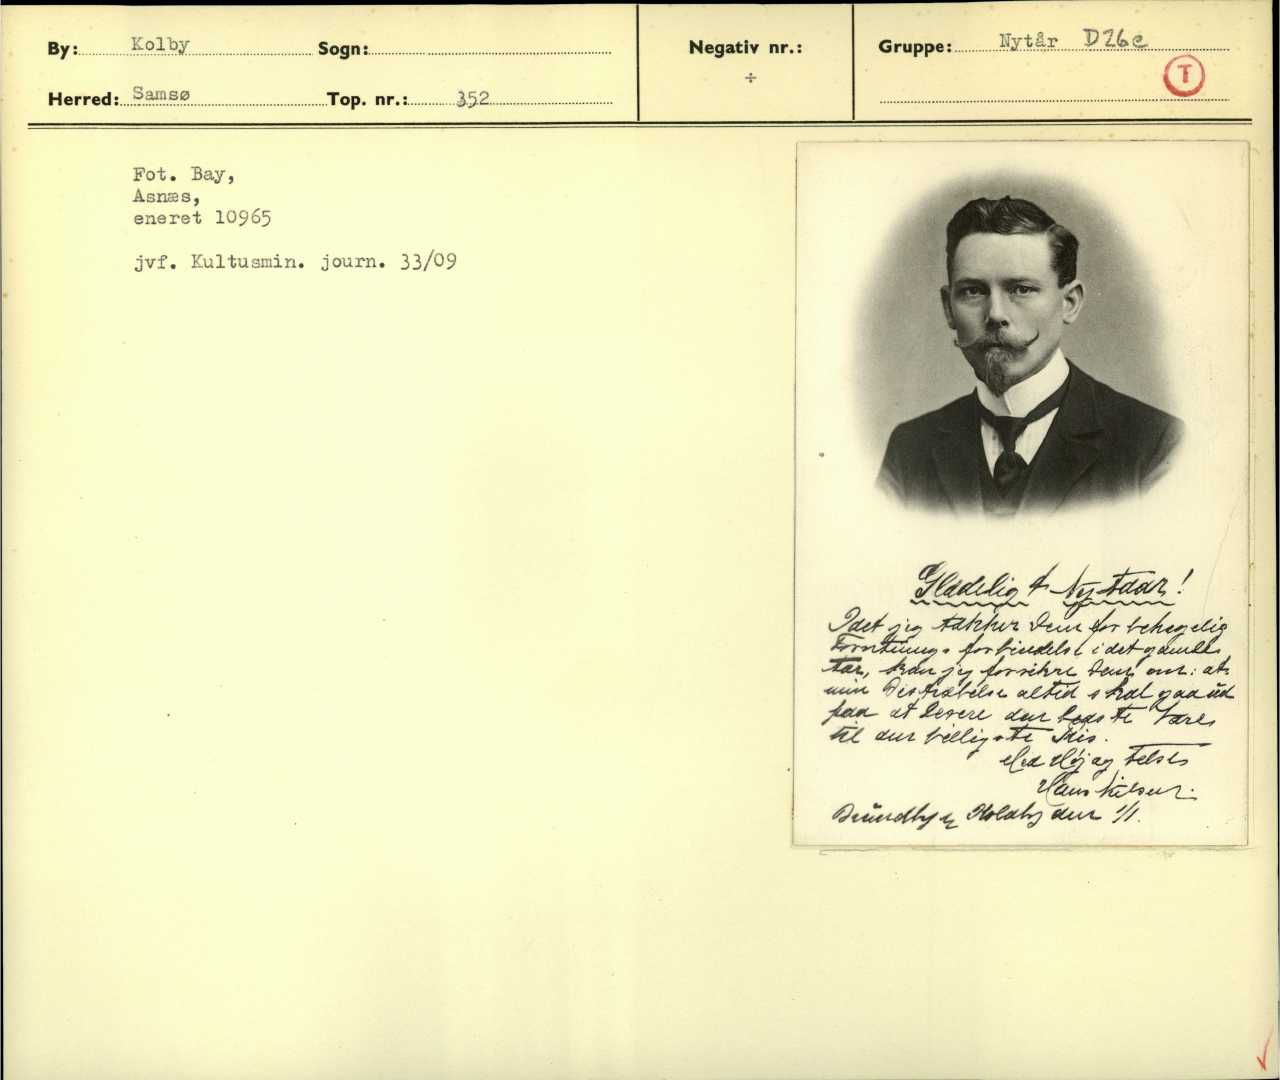 By: Kolby Sogn:
Negativ nr.: ÷
Gruppe: Nytår D26c
T
Herred: Samsø Top. nr.: 352
Fot. Bay,
Asnæs,
eneret 10965
jvf. Kultusmin. journ. 33/09
Glædelig Nytaar!
Idet jeg takker Dem for behagelig
Forretnings forbindelse i det gamle
Aar, kan jeg forsikre Dem om: at
min Bestræbelse altid skal gaa ud
paa at levere den bedste Vare
til den billigste Pris.
Med Højagtelse
Hans Nielsen.
Brundby Kolby den 1/1.